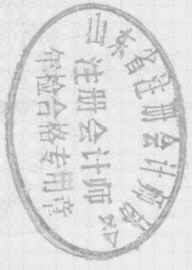 东省注册会计师协
注册会计师
年检合格专用章